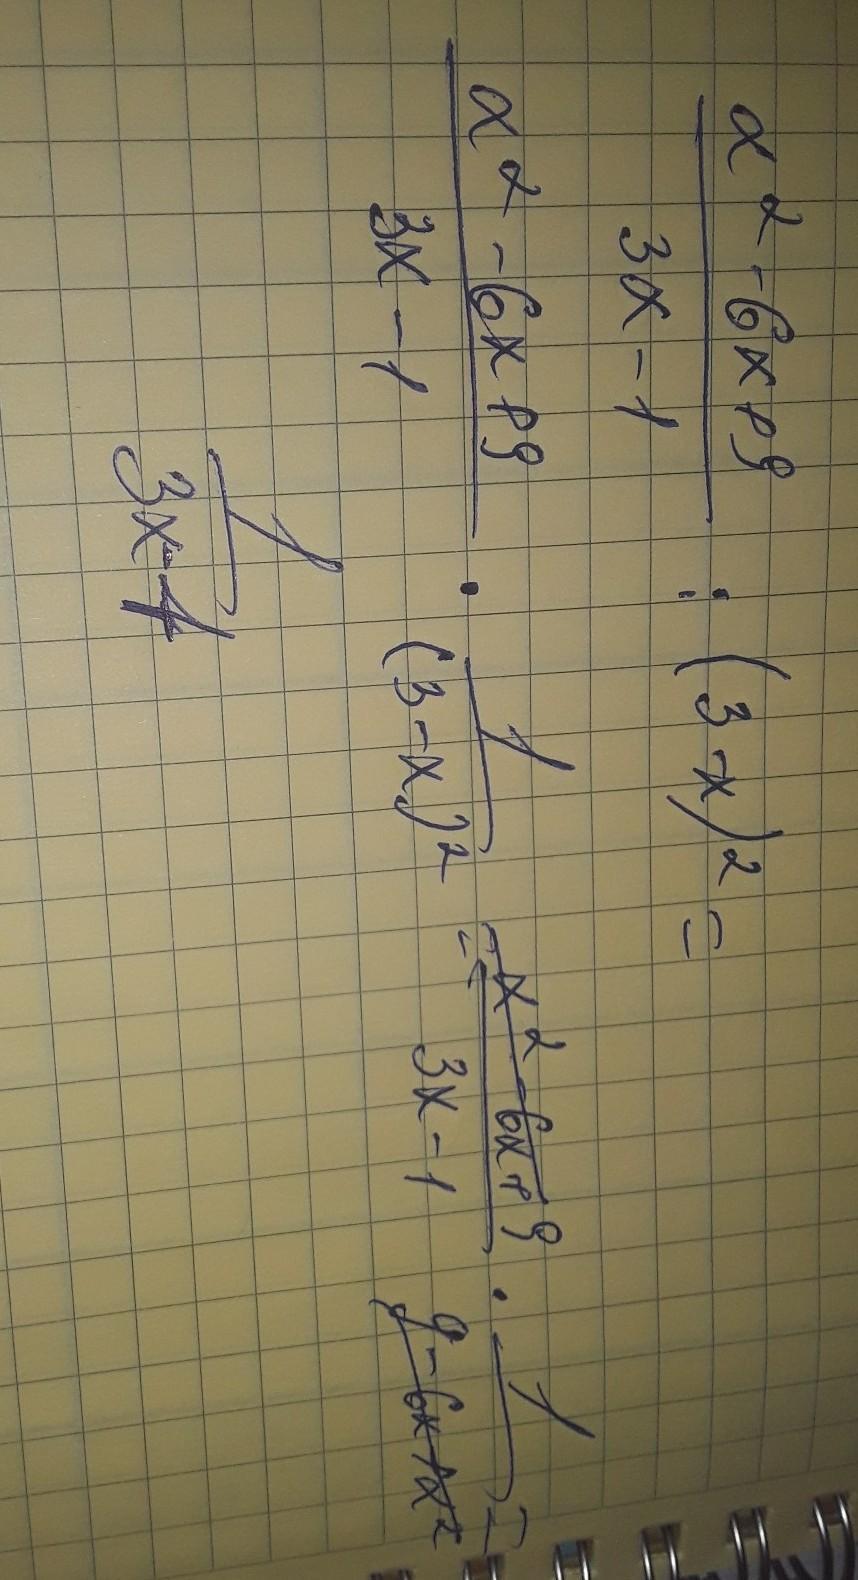 x² - 6x + 9
3x - 1
: (3 - x)² =
x² - 6x + 9
3x - 1
·
1
(3 - x)²
=
x² - 6x + 9
3x - 1
·
1
9 - 6x + x²
=
1
3x - 1